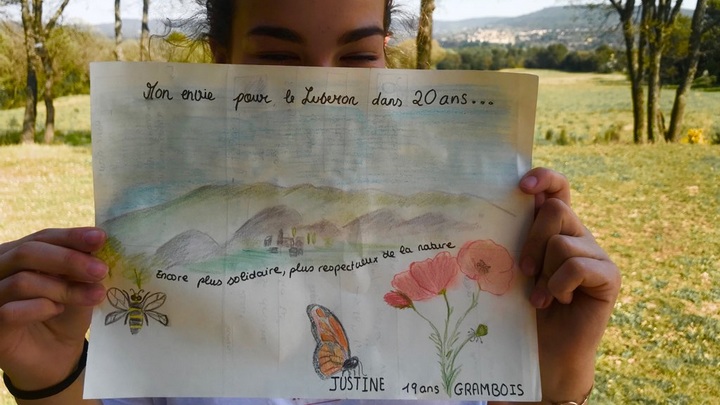 Mon envie pour le Luberon dans 20 ans...
Encore plus solidaire, plus respectueux de la nature
JUSTINE 19 ans GRAMBOIS